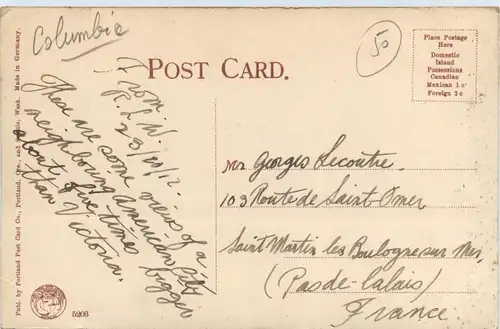 Columbia
50
POST CARD.
Place Postage
Here
Domestic
Island
Possessions
Canadian
Mexican 1c
Foreign 2c
From W.
23/10/12.
These are some views of a
neighbouring American city
about five times bigger
than Victoria.
Mr Georges Lecoutre.
103 Route de Saint-Omer
Saint Martin les Boulogne sur Mer
(Pas-de-Calais)
France.
Publ. by Portland Post Card Co., Portland, Ore., and Seattle, Wash. Made in Germany.
5206